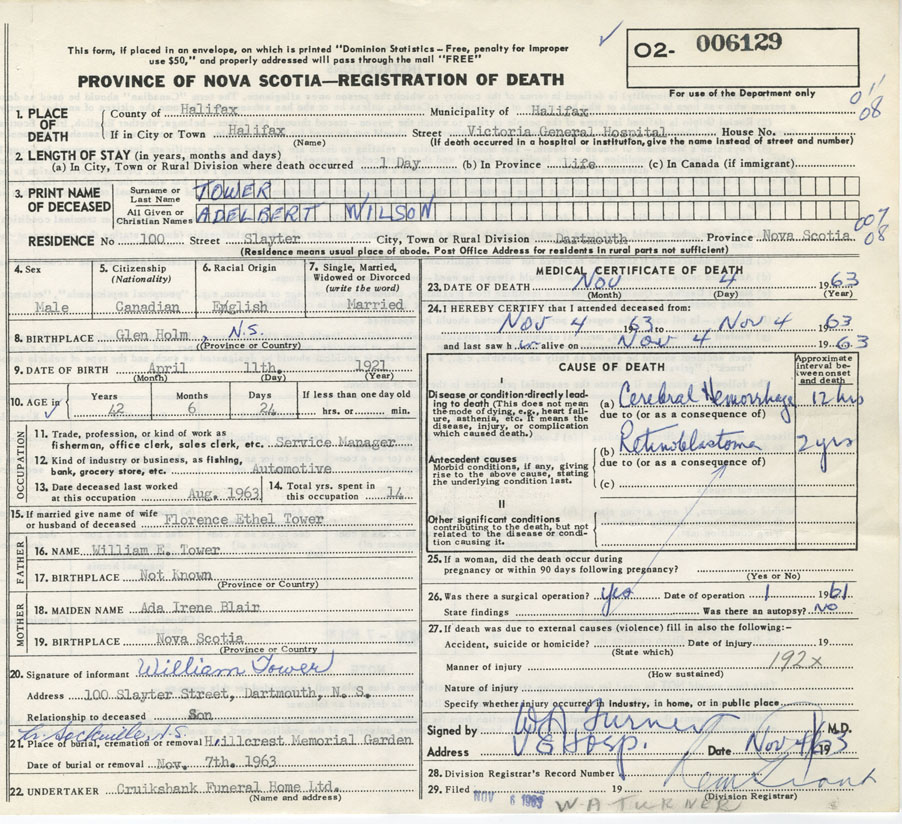 This form, if placed in an envelope, on which is printed "Dominion Statistics – Free, penalty for improper
use $50," and properly addressed will pass through the mail "FREE"
PROVINCE OF NOVA SCOTIA—REGISTRATION OF DEATH
02- 006129
For use of the Department only
01'
08
1. PLACE OF DEATH
County of Halifax Municipality of Halifax
If in City or Town Halifax Street Victoria General Hospital House No.
(Name) (If death occurred in a hospital or institution, give the name instead of street and number)
2. LENGTH OF STAY (in years, months and days)
(a) In City, Town or Rural Division where death occurred 1 Day (b) In Province Life (c) In Canada (if immigrant)
3. PRINT NAME OF DECEASED
Surname or Last Name TOWER
All Given or Christian Names ADELBERT WILSON
007
08
RESIDENCE No 100 Street Slayter City, Town or Rural Division Dartmouth Province Nova Scotia
(Residence means usual place of abode. Post Office Address for residents in rural parts not sufficient)
4. Sex
Male
5. Citizenship
(Nationality)
Canadian
6. Racial Origin
English
7. Single, Married,
Widowed or Divorced
(write the word)
Married
8. BIRTHPLACE Glen Holm, N.S.
(Province or Country)
9. DATE OF BIRTH April 11th. 1921
(Month) (Day) (Year)
10. AGE in
Years Months Days If less than one day old
42 6 24 hrs. or min.
OCCUPATION
11. Trade, profession, or kind of work as
fisherman, office clerk, sales clerk, etc. Service Manager
12. Kind of industry or business, as fishing,
bank, grocery store, etc. Automotive
13. Date deceased last worked
at this occupation Aug. 1963
14. Total yrs. spent in
this occupation 14
15. If married give name of wife
or husband of deceased Florence Ethel Tower
FATHER
16. NAME William E. Tower
17. BIRTHPLACE Not Known
(Province or Country)
MOTHER
18. MAIDEN NAME Ada Irene Blair
19. BIRTHPLACE Nova Scotia
(Province or Country)
20. Signature of informant William Tower
Address 100 Slayter Street, Dartmouth, N. S.
Relationship to deceased Son
Nr. Sackville, N.S.
21. Place of burial, cremation or removal Hillcrest Memorial Garden
Date of burial or removal Nov. 7th. 1963
22. UNDERTAKER Cruikshank Funeral Home Ltd.
(Name and address)
MEDICAL CERTIFICATE OF DEATH
23. DATE OF DEATH Nov 4 1963
(Month) (Day) (Year)
24. I HEREBY CERTIFY that I attended deceased from:
Nov 4 1963 to Nov 4 1963
and last saw h im alive on Nov 4 1963
CAUSE OF DEATH
Approximate
interval between
onset
and death
I
Disease or condition directly leading
to death (This does not mean
the mode of dying, e.g., heart failure,
asthenia, etc. It means the
disease, injury, or complication
which caused death.)
(a) Cerebral Hemorrhage 12 hrs
due to (or as a consequence of)
Antecedent causes
Morbid conditions, if any, giving
rise to the above cause, stating
the underlying condition last.
(b) Retinoblastoma 2 yrs
due to (or as a consequence of)
(c)
II
Other significant conditions
contributing to the death, but not
related to the disease or condition
causing it.
25. If a woman, did the death occur during
pregnancy or within 90 days following pregnancy?
(Yes or No)
26. Was there a surgical operation? yes Date of operation 1 1961
State findings Was there an autopsy? No
27. If death was due to external causes (violence) fill in also the following:-
Accident, suicide or homicide? Date of injury 19
(State which)
192x
Manner of injury
(How sustained)
Nature of injury
Specify whether injury occurred in industry, in home, or in public place
Signed by WA Turner M.D.
Address V G Hosp. Date Nov 4/ 1963
28. Division Registrar's Record Number
29. Filed NOV 6 1963 19
(Division Registrar)
W A TURNER